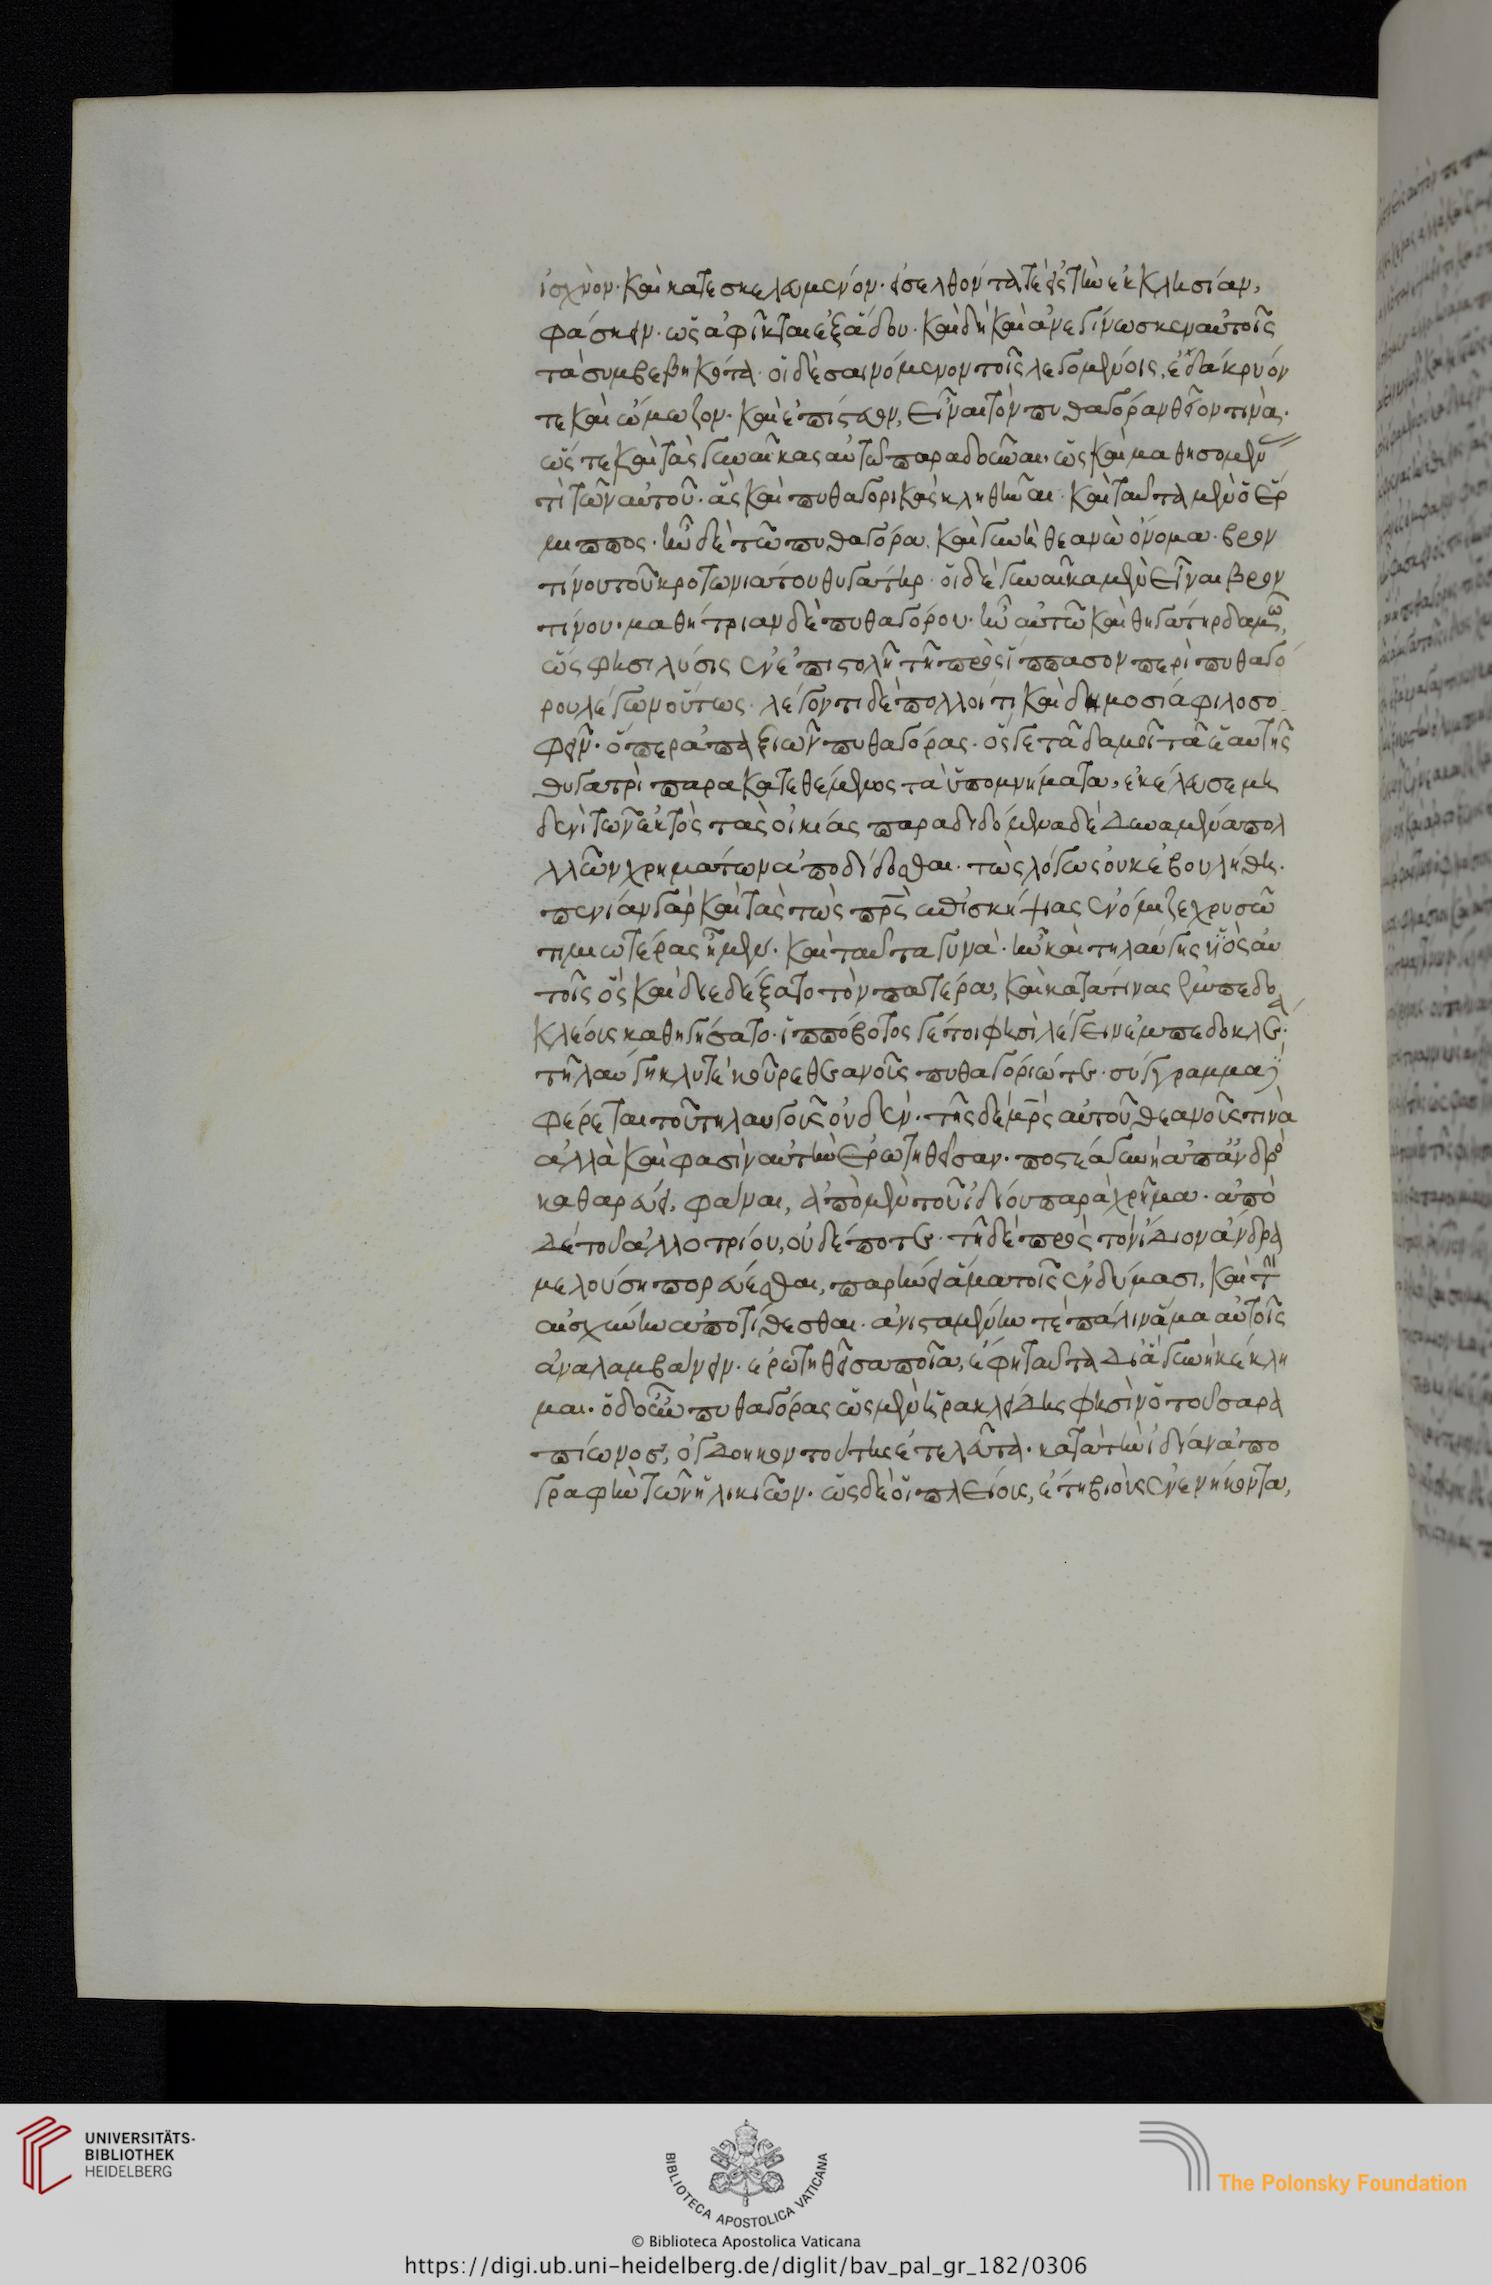 ἰσχνὸν· καὶ κατεσκελευμενόν· εἰσελθόντα τὲ εἰς τὴν ἐκκλησίαν,
φάσκειν· ὡς ἀφίκται ἐξ ἅδου· καὶ δὴ καὶ ἀνεγίνωσκεν αὐτοῖς
τὰ συμβεβηκότα· οἱ δὲ σαινόμενοι τοῖς λεγομένοις, ἐδάκρυόν
τε καὶ ᾤμωζον· καὶ ἐπίστευον, εἶναι τὸν πυθαγόραν θεῖον τινὰ·
ὥς τε καὶ τὰς γυναῖκας αὐτῶ παραδοῦναι, ὡς καὶ μαθησομέν
τὶ τῶν αὐτοῦ· ἃς καὶ πυθαγορικὰς κληθῆναι· καὶ ταῦτα μὲν ὁ ἕρ
μιππος· ἦν δὲ τῶ πυθαγόρα, καὶ γυνὴ θεανὼ ὄνομα· βρον
τίνου τοῦ κροτωνιάτου θυγάτηρ· οἱ δὲ γυναῖκα μὲν εἶναι βρον
τίνου· μαθήτριαν δὲ πυθαγόρου· ἦν αὐτῶ καὶ θηγάτηρ δαμὼ,
ὥς φησι λύσις ἐν ἐπιστολῆ τῆ πρὸς ἵππασον περὶ πυθαγό
ρου λέγων οὕτως· λέγοντι δὲ πολλοὶ τὶ καὶ δημοσία φιλοσο
φεῖν· ὅπερ ἀπαξιῶν πυθαγόρας· ὅς γε τᾶ δαμοῖ τᾶ ἑαυτῆς
θυγατρὶ παρακατεθέμενος τὰ ὑπομνήματα, ἐκέλευσε μη
δενὶ τῶν ἐκτὸς τὰς οἰκίας παραδιδόμεν ἁ δὲ δυναμένα πολ
λλῶν χρημάτων ἀποδίδοσθαι· τὼς λόγως οὐκ ἐβουλήθη·
πενίαν γὰρ καὶ τὰς τὼς πρς ἐπισκήψιας ἐνόμιζε χρυσῶ
τιμιωτέρας ἦμεν· καὶ ταῦτα γυνά· ἦν καὶ τηλαύγης ὑιὸς αὐ
τοῖς ὃς καὶ διεδέξατο τὸν πατέρα, καὶ κατατίνας ἐμπεδο
κλέους καθηγήσατο· ἱππόβοτος γέ τοι φησὶ λέγειν ἐμπεδοκλέα·
τήλαυγη κλυτὲ κοῦρε θεανοῦς πυθαγόρεώ τε· σύγγραμμα
φέρεται τοῦ τηλαυγοῦς οὐδὲν· τῆς δὲ μρς αὐτοῦ θεανοῦς τινὰ
ἀλλὰ καὶ φασὶν αὐτὴν ἐρωτηθεῖσαν· ποσταία γυνὴ ἀπ' ἀνδρὸ
καθαρεύει, φάναι, ἀπὸ μὲν τοῦ ἰδίου παραχρῆμα· ἀπὸ
δὲ τοῦ ἀλλοτρίου, οὐδέποτε· τῆ δὲ πρὸς τὸν ἴδιον ἄνδρα
μελούση πορεύεσθαι, παρήνει ἅμα τοῖς ἐνδύμασι, καὶ τὴ
αἰσχύνην ἀποτίθεσθαι· ἀνισταμένην τὲ πάλιν ἅμα αὐτοῖς
ἀναλαμβάνειν· ἐρωτηθεῖσα ποῖα, ἔφη ταῦτα δι' ἃ γυνὴ κέκλη
μαι· ὁ δ' οὖν πυθαγόρας ὡς μὲν ἡρακλείδης φησὶν ὁ τοῦ σαρα
πίωνος, ὀγδοηκοντούτης ἐτελεύτα· κατὰ τὴν ἰδίαν ἀπο
γραφὴν τῶν ἡλικιῶν· ὡς δὲ οἱ πλείους, ἔτη βιοὺς ἐνενήκοντα,
UNIVERSITÄTS-
BIBLIOTHEK
HEIDELBERG
BIBLIOTECA APOSTOLICA VATICANA
The Polonsky Foundation
© Biblioteca Apostolica Vaticana
https://digi.ub.uni-heidelberg.de/diglit/bav_pal_gr_182/0306